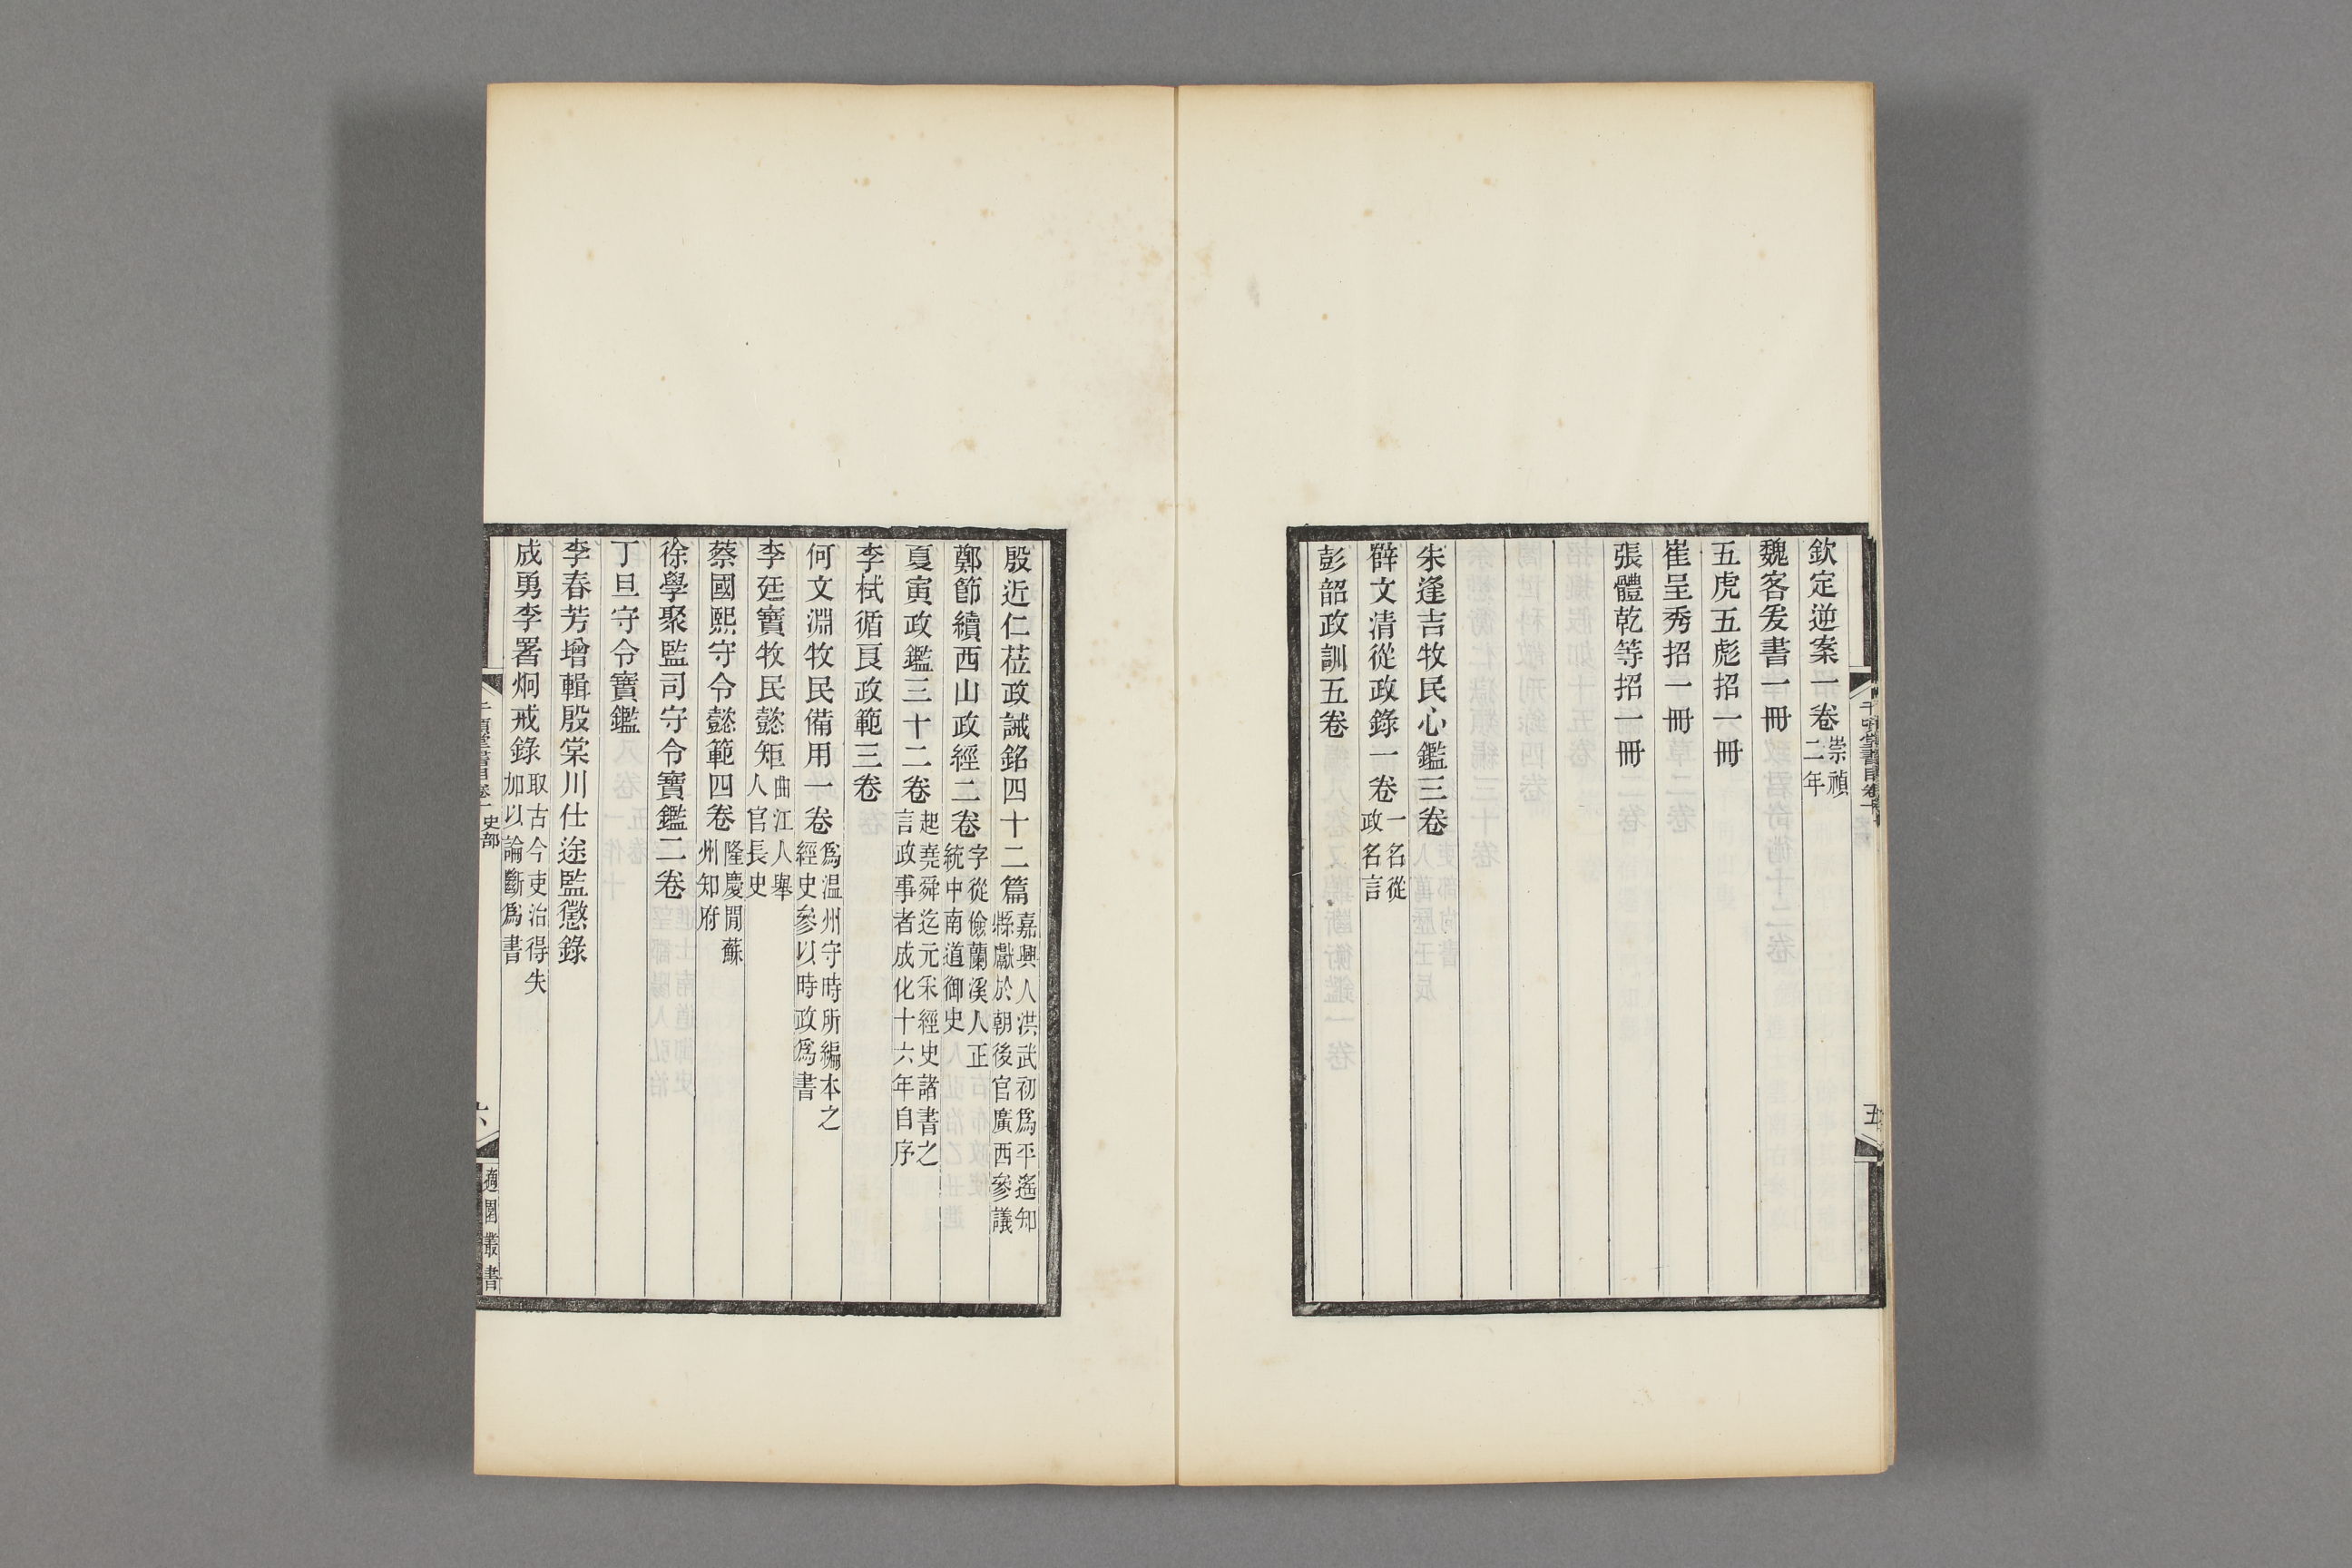 欽定逆案一卷崇禎二年
魏客爰書一冊
五虎五彪招一冊
崔呈秀招一冊
張體乾等招一冊
朱逢吉牧民心鑑三卷
薛文清從政錄一卷一名從政名言
彭韶政訓五卷
五
殷近仁莅政誡銘四十二篇嘉興人洪武初爲平遙知縣獻於朝後官廣西參議
鄭節續西山政經二卷字從儉蘭溪人正統中南道御史
夏寅政鑑三十二卷起堯舜迄元采經史諸書之言政事者成化十六年自序
李栻循良政範三卷
何文淵牧民備用一卷爲溫州守時所編本之經史參以時政爲書
李廷寶牧民懿矩曲江人舉人官長史
蔡國熙守令懿範四卷隆慶間蘇州知府
徐學聚監司守令寶鑑二卷
丁旦守令寶鑑
李春芳增輯殷棠川仕途監懲錄
成勇李署炯戒錄取古今吏治得失加以論斷爲書
千頃堂書目卷十 史部
六
適園叢書